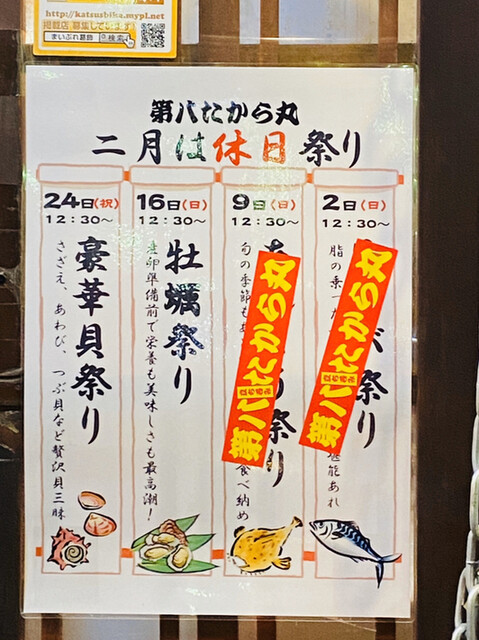 http://katsushika.mypl.net
掲載店、募集しています!
まいぷれ葛飾 検索
第八たから丸
二月は休日祭り
2日(日)
12:30〜
祭り
脂の乗った
堪能あれ
第八たから丸
9日(日)
12:30〜
祭り
旬の季節も
食べ納め
第八たから丸
16日(日)
12:30〜
牡蠣祭り
産卵準備前で栄養も美味しさも最高潮!
24日(祝)
12:30〜
豪華貝祭り
さざえ、あわび、つぶ貝など贅沢貝三昧